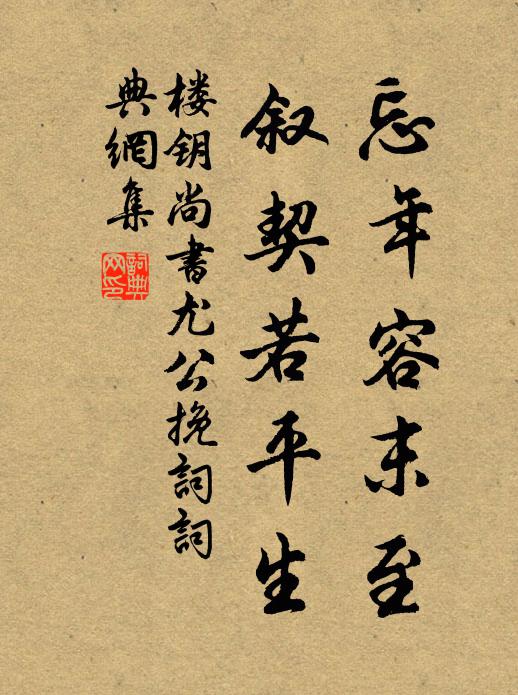 忘年容末至
叙契若平生
楼钥尚書尤公挽詞詞
典網集
詞典網印